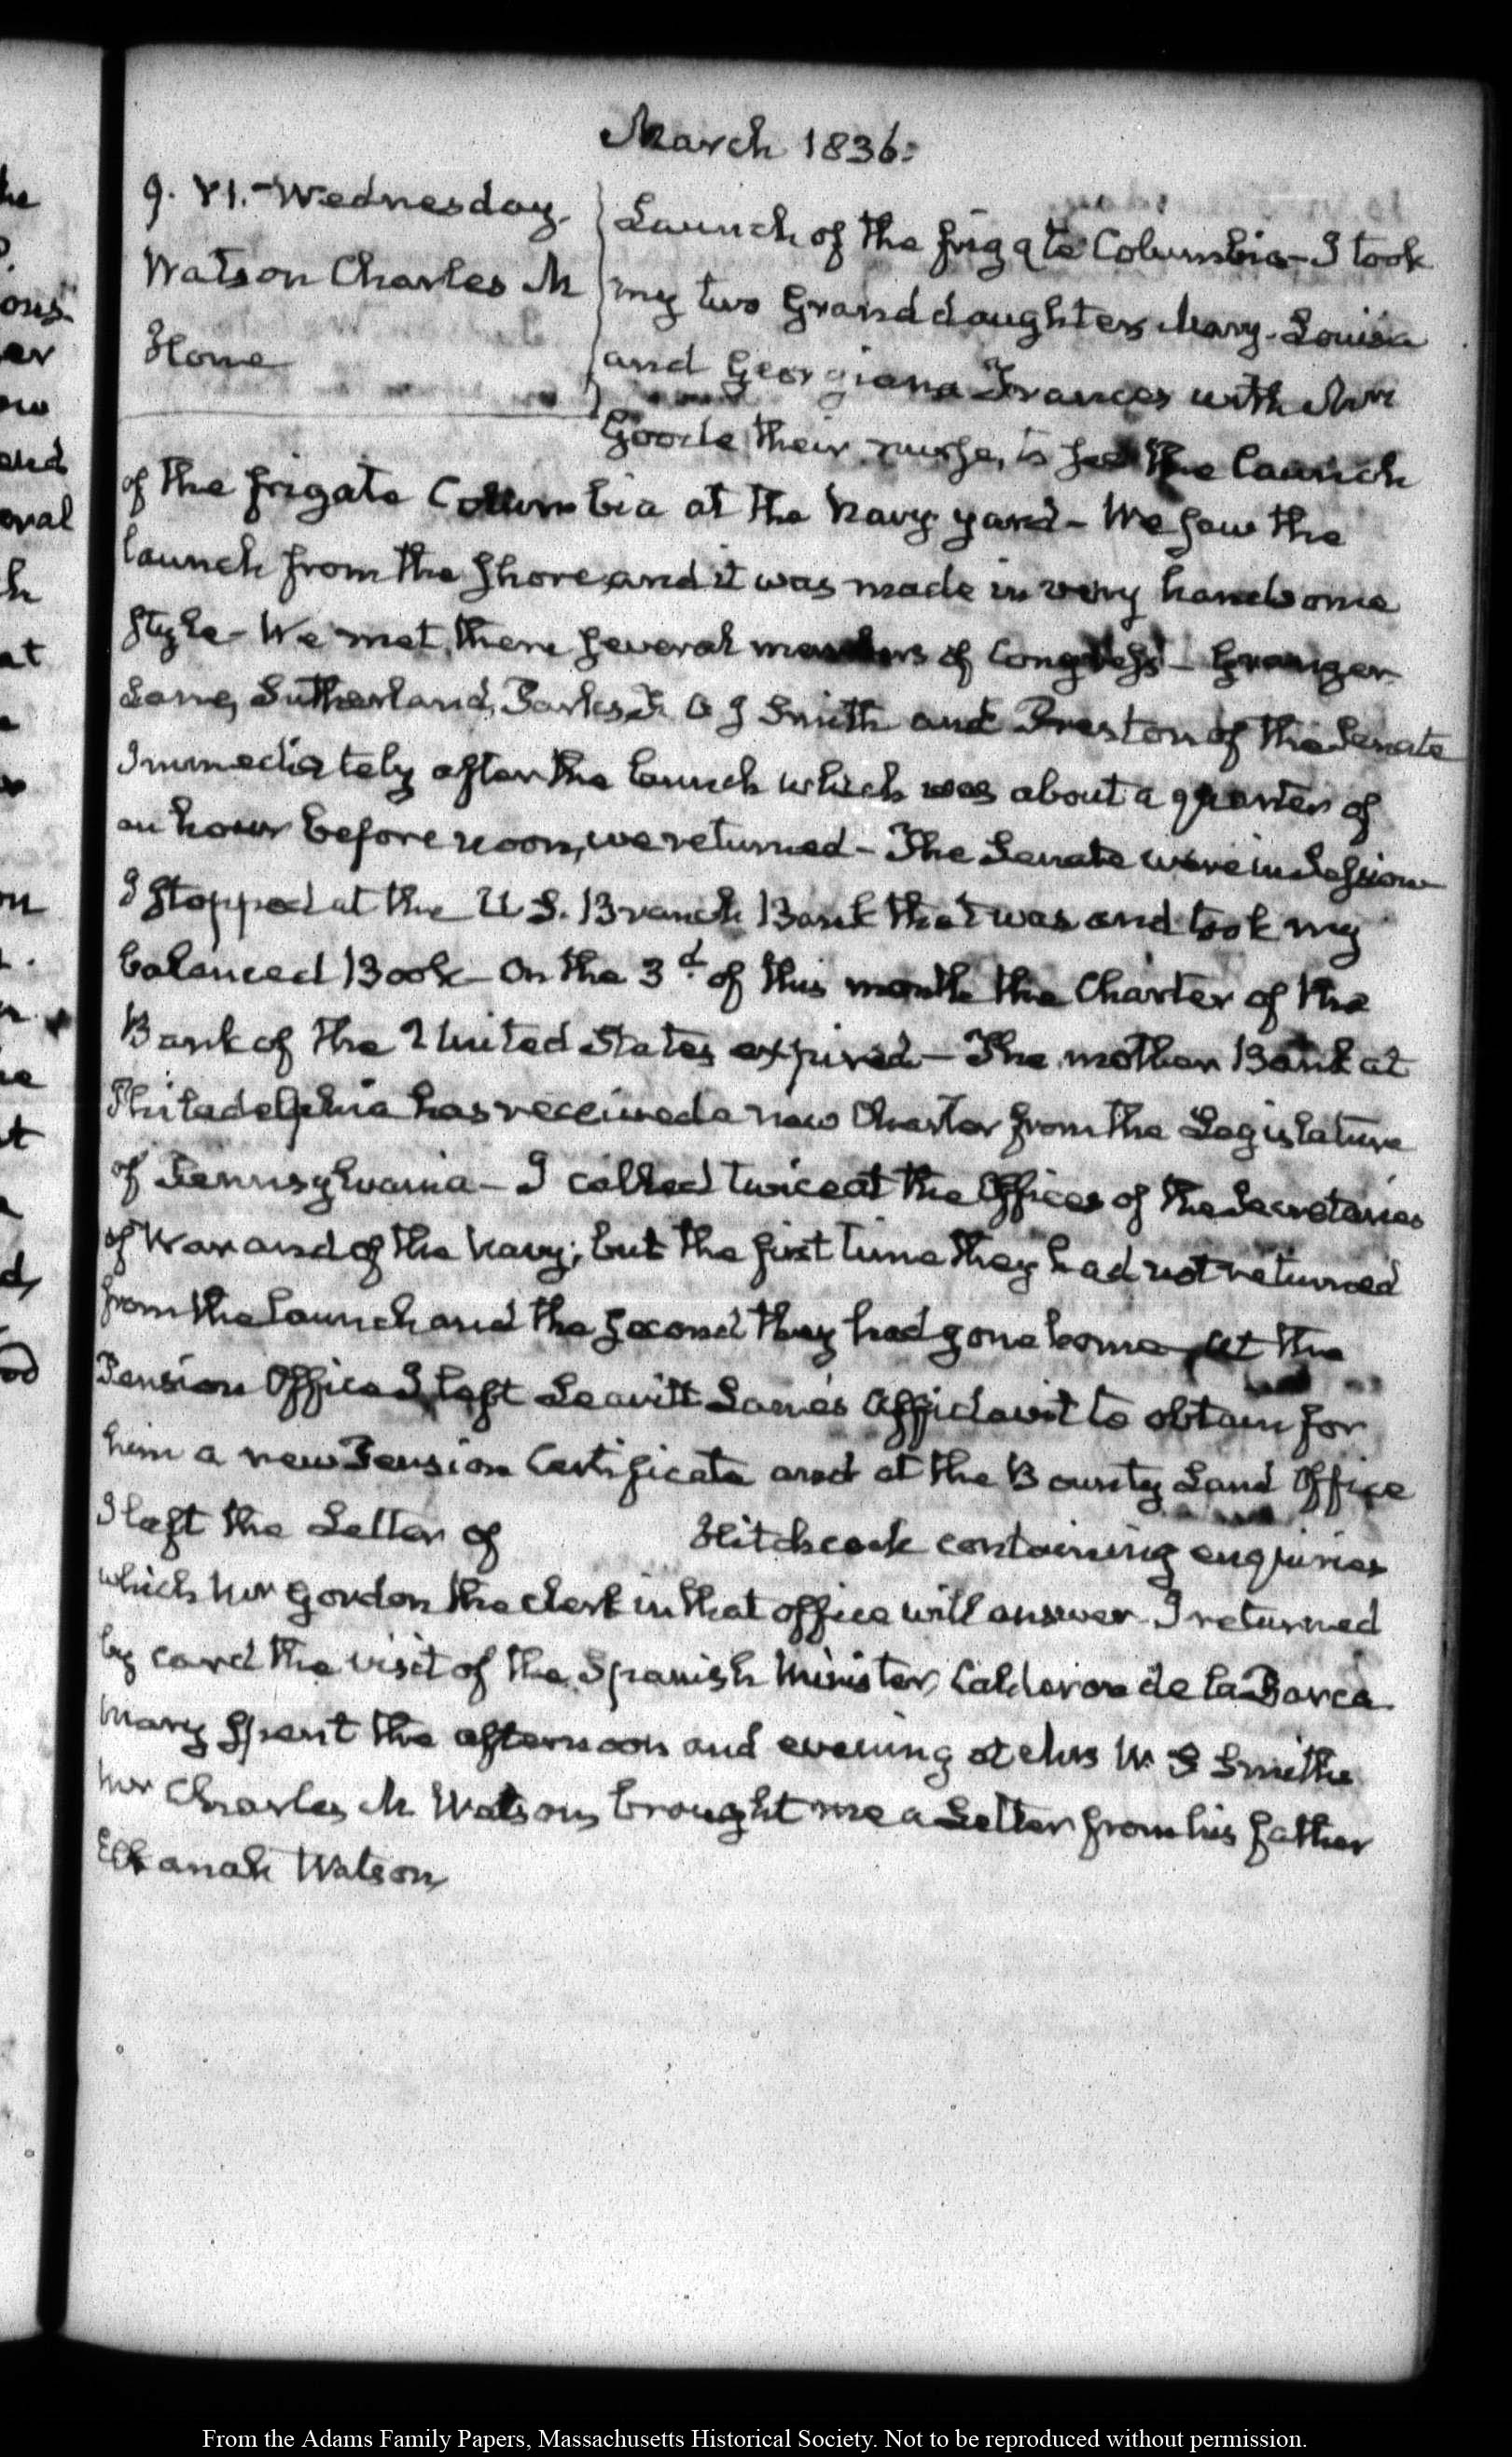 March 1836.
9. VI.- Wednesday.
Watson Charles M
Hone
Launch of the frigate Columbia- I took
my two Granddaughters Mary-Louisa
and Georgiana Frances with Mrs
Goode their nurse, to see the launch
of the frigate Columbia at the Navy yard- We saw the
launch from the shore, and it was made in very handsome
style- We met there several members of Congress- Granger
Lane, Sutherland, Parks, F. O J Smith and Preston of the Senate
Immediately after the launch which was about a quarter of
an hour before noon, we returned- The Senate were in Session
I stopped at the U.S. Branch Bank that was and took my
balanced Book- On the 3d. of this month the Charter of the
Bank of the United States expired- The mother Bank at
Philadelphia has received a new Charter from the Legislature
of Pennsylvania- I called twice at the Offices of the Secretaries
of War and of the Navy; but the first time they had not returned
from the launch and the second they had gone home, At the
Pension Office I left Leavitt Lane's Affidavit to obtain for
him a new Pension Certificate and at the Bounty Land Office
I left the Letter of Hitchcock containing enquiries
which Mr Gordon the clerk in that office will answer- I returned
by card the visit of the Spanish Minister, Calderon de la Barca
Mary spent the afternoon and evening at Mrs W. S Smith's
Mr Charles M Watson, brought me a Letter from his father
Elkanah Watson,
he
ons-
er
and
eral
h
at
t
d,
From the Adams Family Papers, Massachusetts Historical Society. Not to be reproduced without permission.